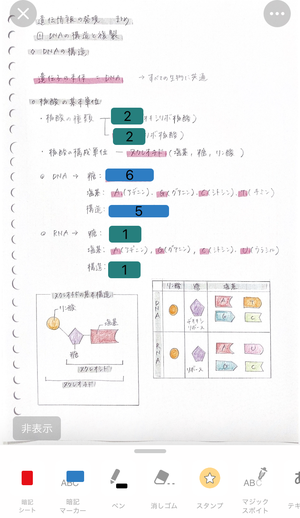 遺伝情報の発現
① DNAの構造と複製
◇ DNAの構造
遺伝子の本体 = DNA → すべての生物に共通
◎ 核酸の基本単位
・核酸の種類 2 (デオキシリボ核酸)
2 (リボ核酸)
・核酸の構成単位 — ヌクレオチド (塩基, 糖, リン酸)
◎ DNA → 糖: 6
塩基: A(アデニン), G(グアニン), C(シトシン), T(チミン)
構造: 5
◎ RNA → 糖: 1
塩基: A(アデニン), G(グアニン), C(シトシン), U(ウラシル)
構造: 1
ヌクレオチドの基本構造
リン酸
塩基
糖
ヌクレオシド
ヌクレオチド
リン酸 糖 塩基
DNA
デオキシリボース
A T
G C
RNA
リボース
A U
G C
非表示
暗記シート
暗記マーカー
ペン
消しゴム
スタンプ
マジックスポイト
ABC
ABC
テキ